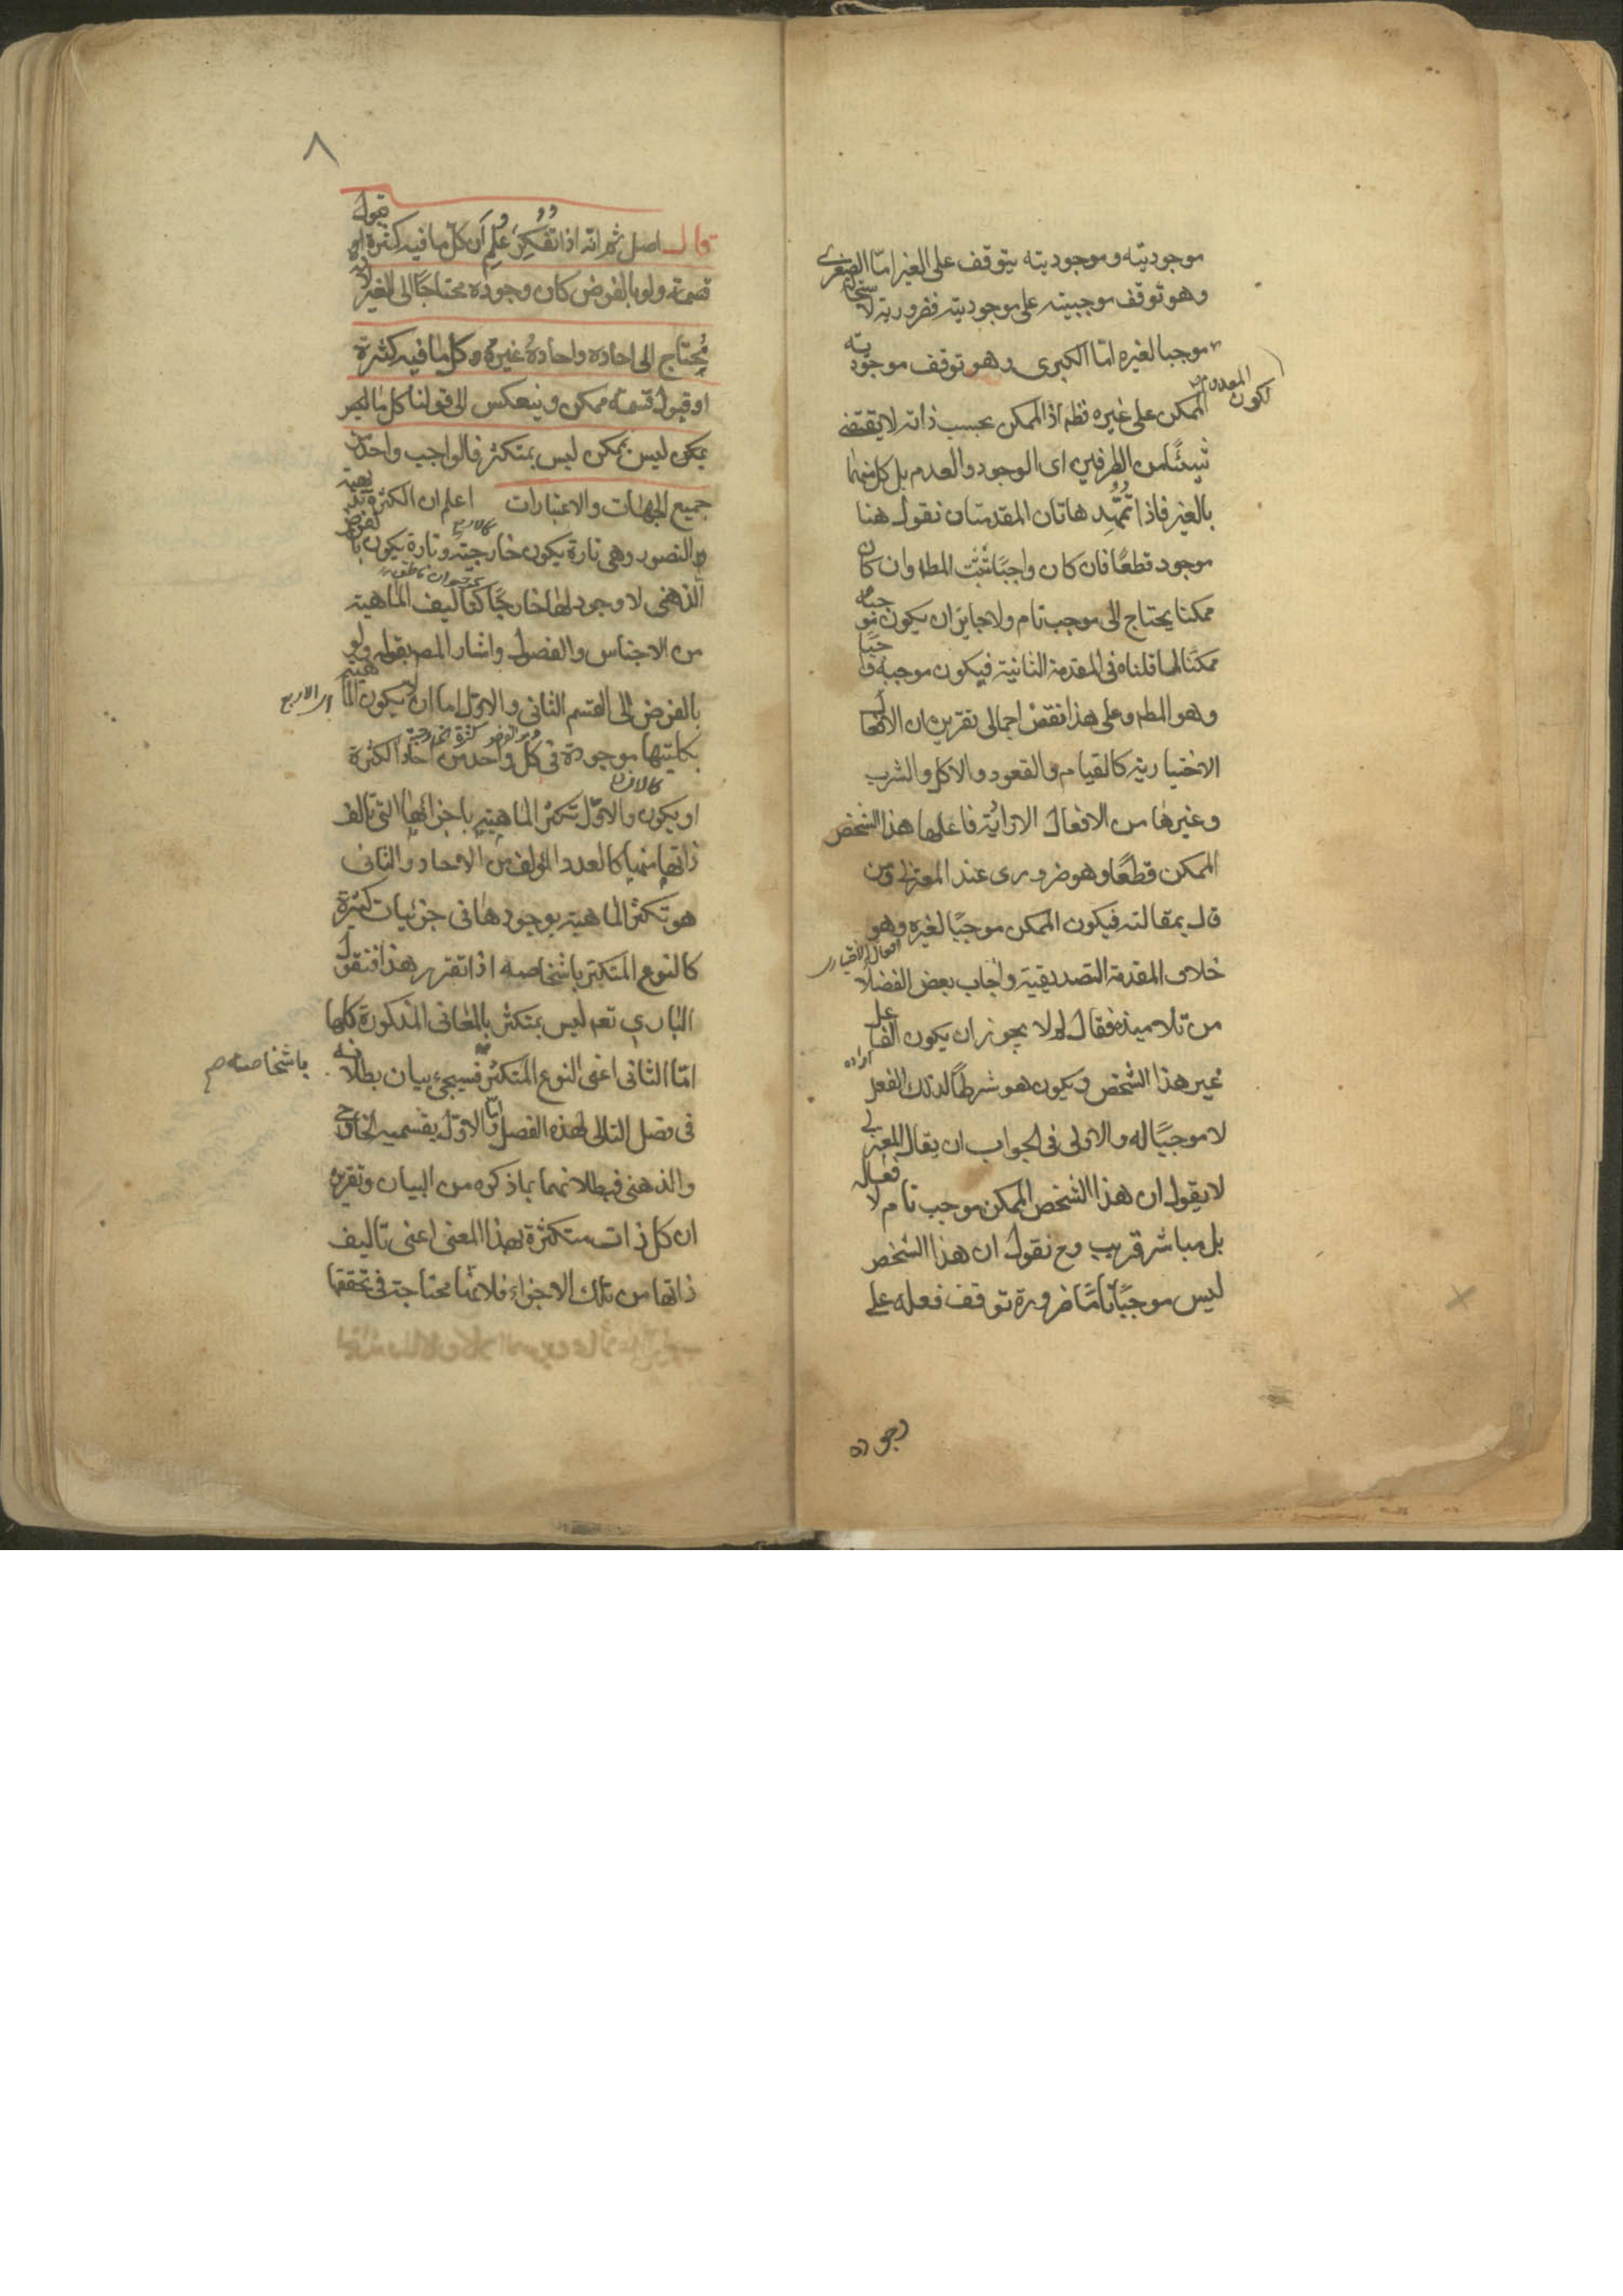 موجوديته وموجوديته يتوقف على الغير امّا الصغرى
وهو توقف موجبيته على موجوديته فضرورية لاستحالة
موجبا لغيره امّا الكبرى وهو توقف موجوديته
لكون المعدوم
الممكن على غيره فظه اذ الممكن بحسب ذاته لا يقتضى
شيئًا من الطرفين اى الوجود والعدم بل كل منهما
بالغير فاذا تمهّد هاتان المقدمتان نقول هنا
موجود قطعًا فان كان واجبًا ثبت المطه وان كان
ممكنا يحتاج الى موجب تام ولا جايز ان يكون موجبه
ممكنًا لما قلناه فى المقدمة الثانية فيكون موجبه واجبًا
وهو المطه وعلى هذا نقض اجمالى تقريره ان الافعال
الاختيارية كالقيام والقعود والاكل والشرب
وغيرها من الافعال الارادية فاعلها هذا الشخص
الممكن قطعًا وهو ضرورى عند المعتزلة ومن
قال بمقالته فيكون الممكن موجبًا لغيره وهو
افعال الاختيارى
خلاف المقدمة التصديقية واجاب بعض الفضلا
من تلاميذه فقال لم لا يجوز ان يكون الفاعل
اراده
غير هذا الشخص ويكون هو شرطًا لذلك الفعل
لا موجبًا له والاولى فى الجواب ان يقال المعتزلى
لا يقول ان هذا الشخص الممكن موجب تام لافعاله
بل مباشر قريب وح نقول ان هذا الشخص
ليس موجبًا تامًا ضرورة توقف فعله على
وجوده
٨
قال اصل ثم انه اذا تفكر علم ان كل ما فيه كثرة او قبول
قسمة ولو بالفرض كان وجوده محتاجًا الى الغير لانه
يحتاج الى احاده واحاده غيره وكل ما فيه كثرة
او قبول قسمة ممكن وينعكس الى قولنا كل ما ليس
بمكن ليس بممكن ليس بمتكثر فالواجب واحد من
جميع الجهات والاعتبارات اعلم ان الكثرة بديهية
كالاربع
التصور وهى تارة يكون خارجية وتارة يكون بالفرض
كحيوان ناطق
الذهنى لا وجود لها خارجًا كتاليف الماهية
من الاجناس والفصول واشار المص بقوله ولو
بالفرض الى القسم الثانى والاول اما ان يكون الماهية
اى الاربع
بكليتها موجودة فى كل واحد من احاد الكثرة
كالانسان
او يكون والاوّل تكثر الماهية باجزائها التى تالف
ذاتها منها كالعدد المؤلف من الاحاد والثانى
هو تكثر الماهية بوجودها فى جزئيات كثيرة
كالنوع المتكثر باشخاصه اذا تقرر هذا فنقول
البارى تعه ليس بمتكثر بالمعانى المذكورة كلها
امّا الثانى اعنى النوع المتكثر فسيجىء بيان بطلانه
باشخاصه صح
فى فصل التالى لهذه الفصل وامّا الاوّل بقسميه الخارجى
والذهنى فبطلانهما بما ذكره من البيان وتقريره
ان كل ذات متكثرة بهذا المعنى اعنى تاليف
ذاتها من تلك الاجزاء فلانها محتاجة فى تحققها